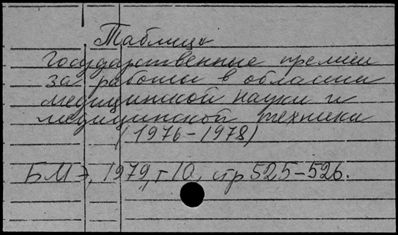 Таблица
Государственные премии
за работы в области
медицинской науки и
медицинской техники
(1976-1978)
БМЭ, 1979, т 10, стр 525-526.